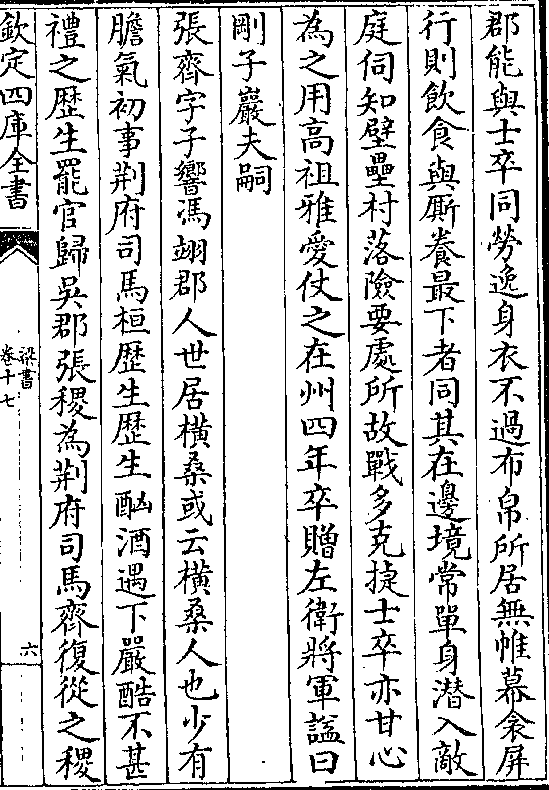 郡能與士卒同勞逸身衣不過布帛所居無帷幕衾屏
行則飲食與厮養最下者同其在邊境常單身潜入敵
庭伺知壁壘村落險要處所故戰多克捷士卒亦甘心
為之用高祖雅愛仗之在州四年卒贈左衛將軍諡曰
剛子巖夫嗣
張齊字子響馮翊郡人世居横桑或云横桑人也少有
膽氣初事荆府司馬桓歴生歴生酗酒遇下嚴酷不甚
禮之歴生罷官歸吳郡張稷為荆府司馬齊復從之稷
欽定四庫全書
梁書
卷十七
六